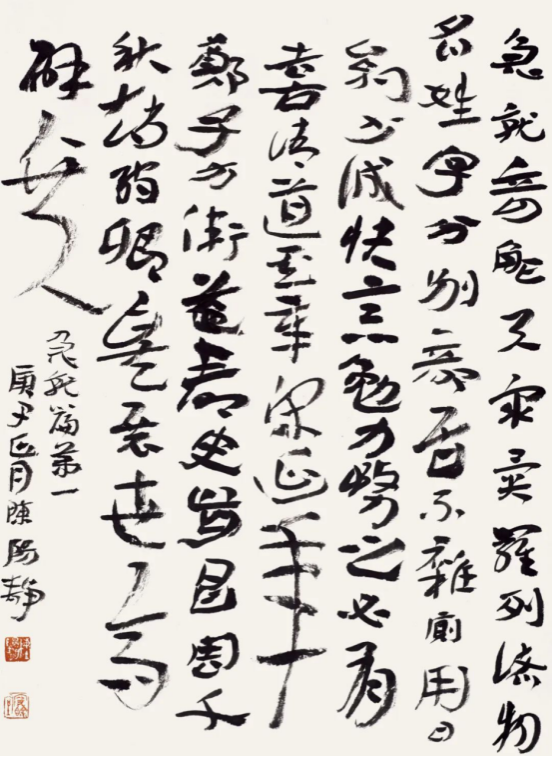 急就奇觚与眾異羅列諸物
名姓字分別部居不雜廁用日
約少誠快意勉力務之必有
喜請道其章宋延年
鄭子方衛益壽史步昌周千
秋趙孺卿爰展世高
辟兵
急就篇第一
庚寅正月陳陽靜